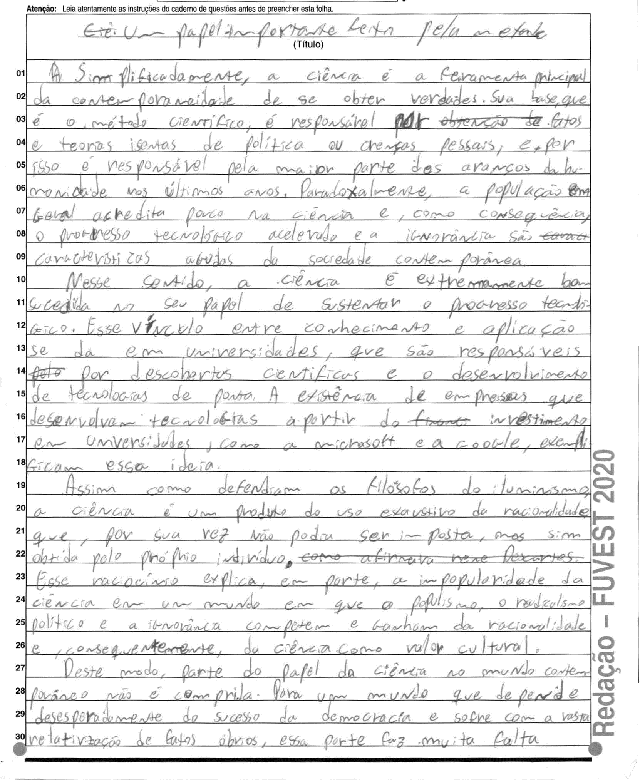 Atenção: Leia atentamente as instruções do caderno de questões antes de preencher esta folha.
Um papel importante feito pela metade
(Título)
01 Simplificadamente, a ciência é a ferramenta principal
02 da contemporanaidade de se obter verdades. Sua base, que
03 é o método científico, é responsável por obtenção de fatos
04 e teorias isentas de política ou crenças pessais, e por
05 isso é responsável pela maior parte dos avanços da hu-
06 manidade nos últimos anos. Paradoxalmente, a população em
07 Geral acredita pouco na ciência e, como consequência,
08 o progresso tecnológico acelerado e a ignorância são
09 características agudas da sociedade contemporânea
10 Nesse sentido, a ciência é extremamente bem
11 sucedida no seu papel de sustentar o progresso tecnoló-
12 gico. Esse vínculo entre conhecimento e aplicação
13 se da em universidades, que são responsáveis
14 por descobertas científicas e o desenvolvimento
15 de tecnologias de ponta. A existência de empresas que
16 desenvolvam tecnologias apartir do investimento
17 em universidades, como a microsoft e a Google, exempli
18 ficam essa ideia.
19 Assim como defendiam os filósofos do iluminismo,
20 a ciência é um produto do uso exaustivo da racionalidade
21 que, por sua vez não podia ser imposta, mas sim
22 obtida pelo próprio indivíduo, como afirmava rené Descartes.
23 Esse raciocínio explica, em parte, a impopularidade da
24 ciência em um mundo em que o populismo, o radicalismo
25 político e a ignorância competem e Ganham da racionalidade
26 e, consequentemente, da ciência como valor cultural.
27 Deste modo, parte do papel da ciência no mundo contem
28 porâneo não é comprida. Para um mundo que depende
29 desesperadamente do sucesso da democracia e sofre com a vasta
30 relativização de fatos óbvios, essa parte faz muita falta.
Redação – FUVEST 2020